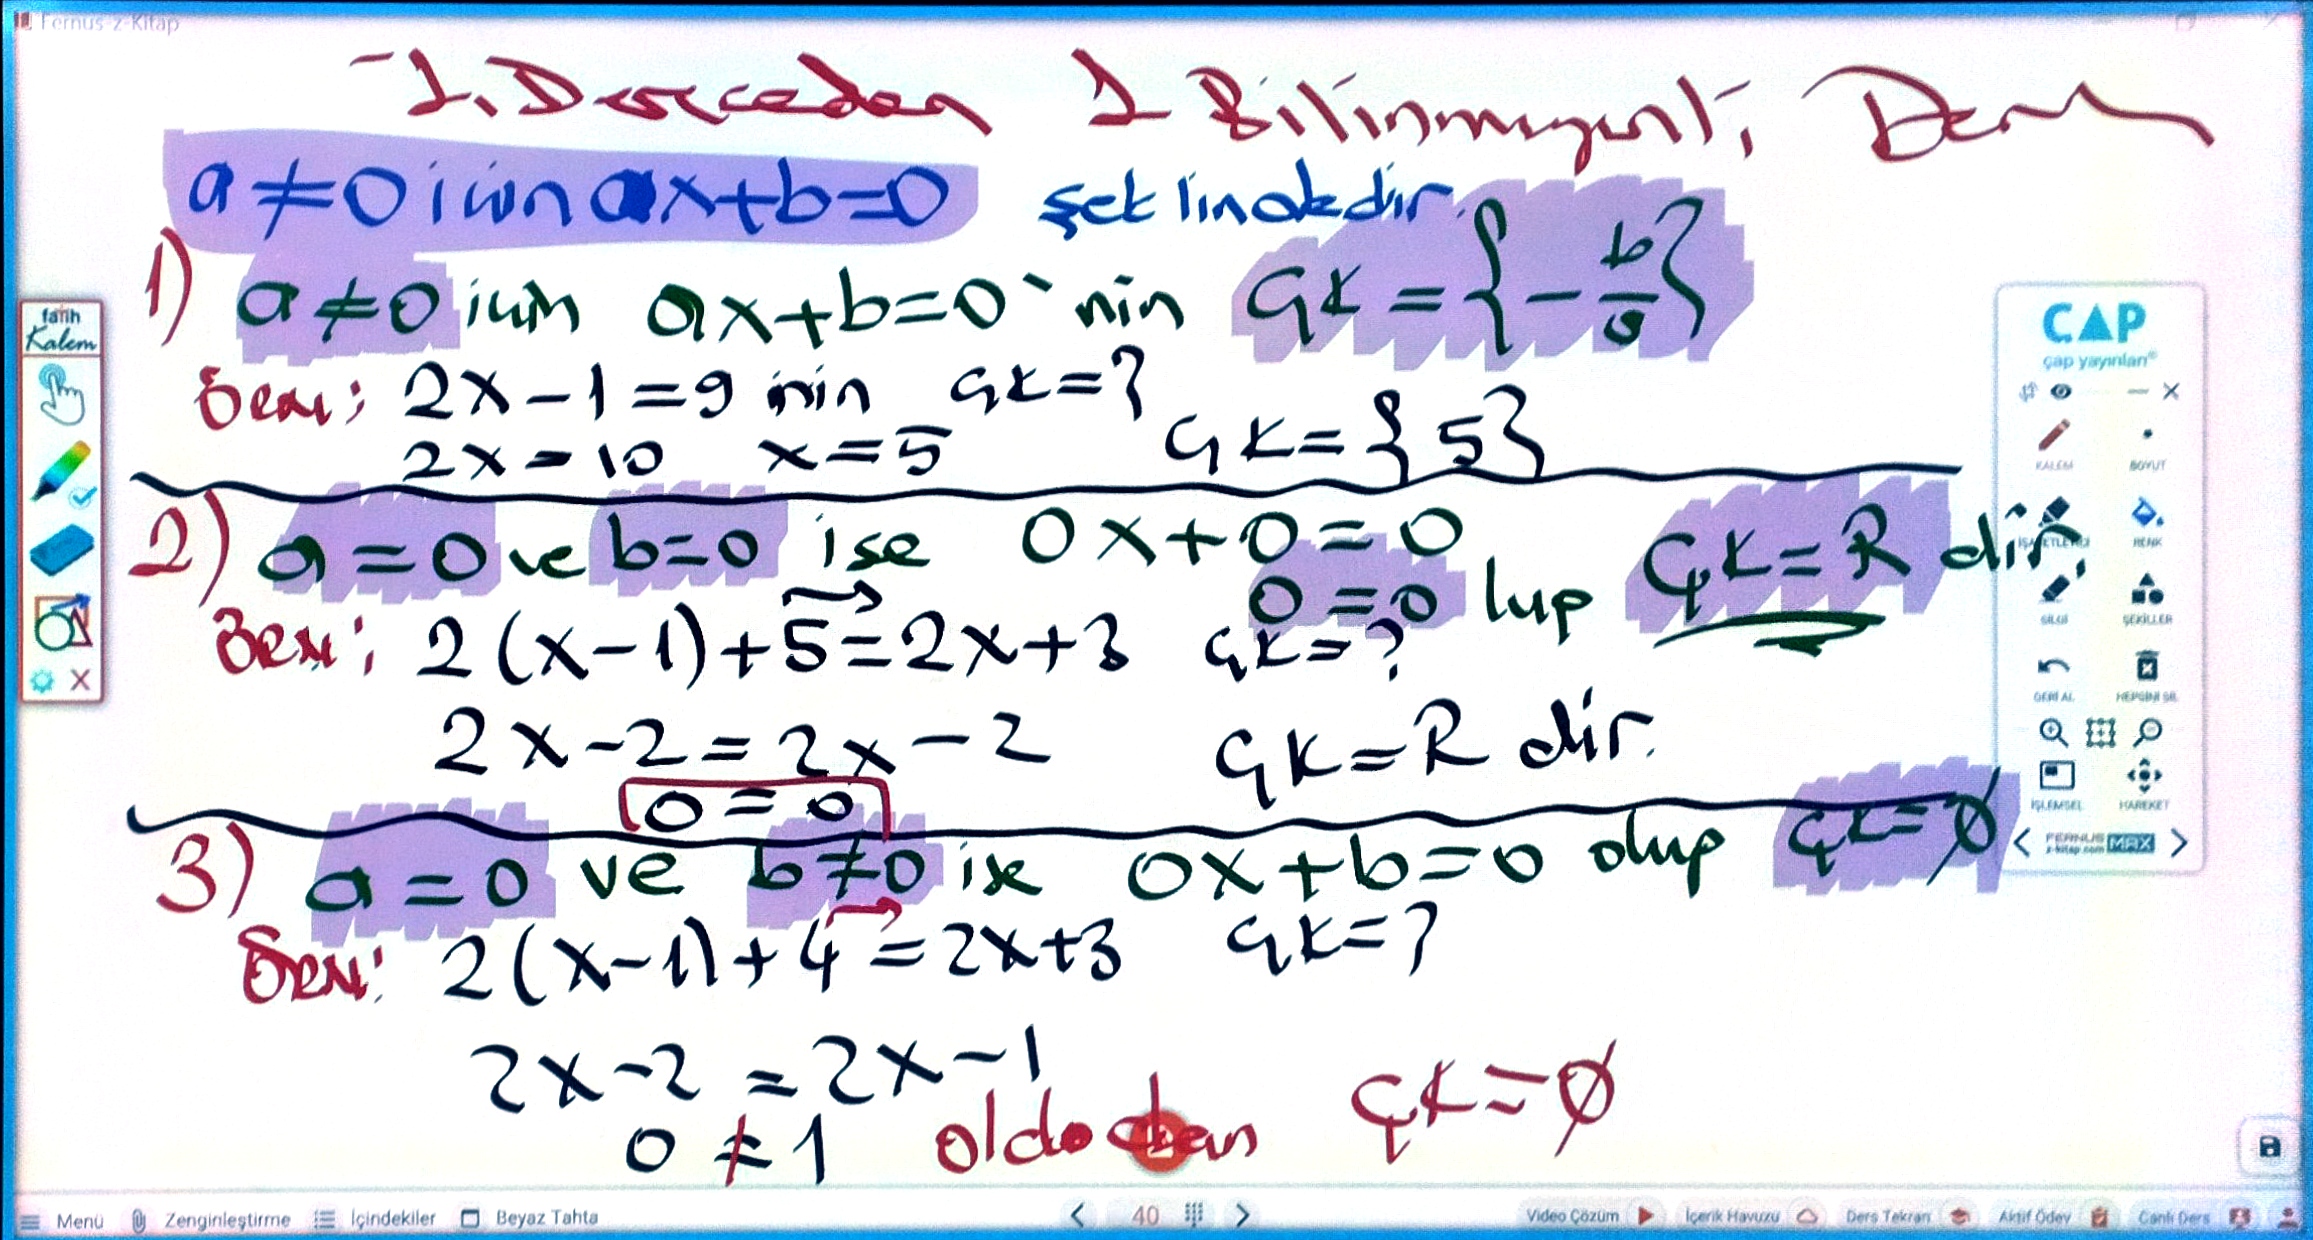 Fernus z-Kitap
1. Dereceden 1 Bilinmeyenli Denk
a ≠ 0 için ax+b=0 şeklindedir.
1) a ≠ 0 için ax+b=0'nin ÇK = {-b/a}
Örnek: 2x-1=9 nin ÇK=?
2x=10 x=5 ÇK={5}
2) a=0 ve b=0 ise 0x+0=0 ÇK=R dir.
0=0 lup
Örnek: 2(x-1)+5=2x+3 ÇK=?
2x-2=2x-2 ÇK=R dir.
0=0
3) a=0 ve b≠0 ise 0x+b=0 olup ÇK=∅
Örnek: 2(x-1)+4=2x+3 ÇK=?
2x-2=2x-1
0≠1 oldodan ÇK=∅
fatih
Kalem
ÇAP
çap yayınları
KALEM BOYUT
İŞARETLEYİCİ RENK
SİLGİ ŞEKİLLER
GERİ AL HEPSİNİ SİL
İŞLEMSEL HAREKET
FERNUS MAX
z-kitap.com
Menü Zenginleştirme İçindekiler Beyaz Tahta 40 Video Çözüm İçerik Havuzu Ders Tekrarı Aktif Ödev Canlı Ders